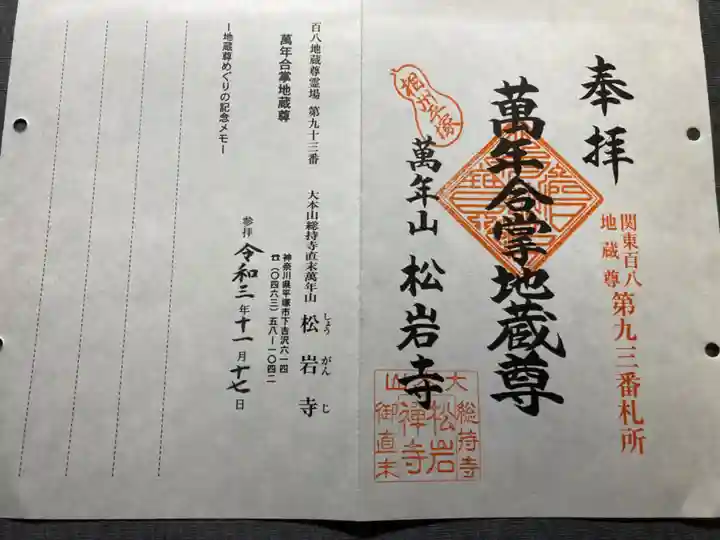 奉拝
関東百八
地蔵尊
第九三番札所
萬年合掌地蔵尊
相州平塚
萬年山 松岩寺
大
総持寺
松岩
禅寺
山
御直末
百八地蔵尊霊場 第九十三番
萬年合掌地蔵尊
―地蔵尊めぐりの記念メモ―
大本山総持寺直末萬年山 松岩寺
しょう がん じ
神奈川県平塚市下吉沢六一四
☎(〇四六三)五八―一〇四二
参拝 令和三年十一月十七日